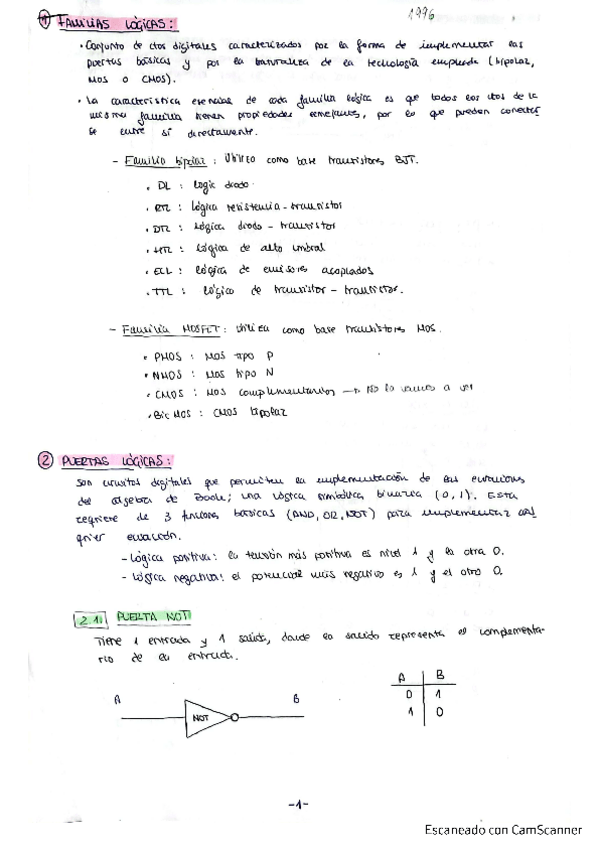 1996
① FAMILIAS LÓGICAS:
• Conjunto de ctos digitales caracterizados por la forma de implementar las
puertas básicas y por la naturaleza de la tecnología empleada (bipolar,
MOS o CMOS).
• La característica esencial de cada familia lógica es que todos los ctos de la
misma familia tienen propiedades semejantes, por lo que pueden conectar
se entre sí directamente.
- Familia bipolar: Utiliza como base transistores BJT.
• DL : Logic diodo.
• RTL : Lógica resistencia-transistor
• DTL : Lógica diodo - transistor
• HTL : Lógica de alto umbral
• ECL : Lógica de emisores acoplados
• TTL : Lógica de transistor - transistor.
- Familia MOSFET: utiliza como base transistores MOS.
• PMOS : MOS tipo P
• NMOS : MOS tipo N
• CMOS : MOS complementarios → No lo vamos a ver
• BicMOS : CMOS bipolar
② PUERTAS LÓGICAS:
Son circuitos digitales que permiten la implementación de las ecuaciones
del álgebra de Boole; una lógica simbólica binaria (0,1). Esta
requiere de 3 funciones básicas (AND, OR, NOT) para implementar cual
quier ecuación.
- Lógica positiva: la tensión más positiva es nivel 1 y la otra 0.
- Lógica negativa: el potencial más negativo es 1 y el otro 0.
2.1. PUERTA NOT
Tiene 1 entrada y 1 salida, donde la salida representa el complementa-
rio de la entrada.
A B
0 1
1 0
A NOT B
-1-
Escaneado con CamScanner